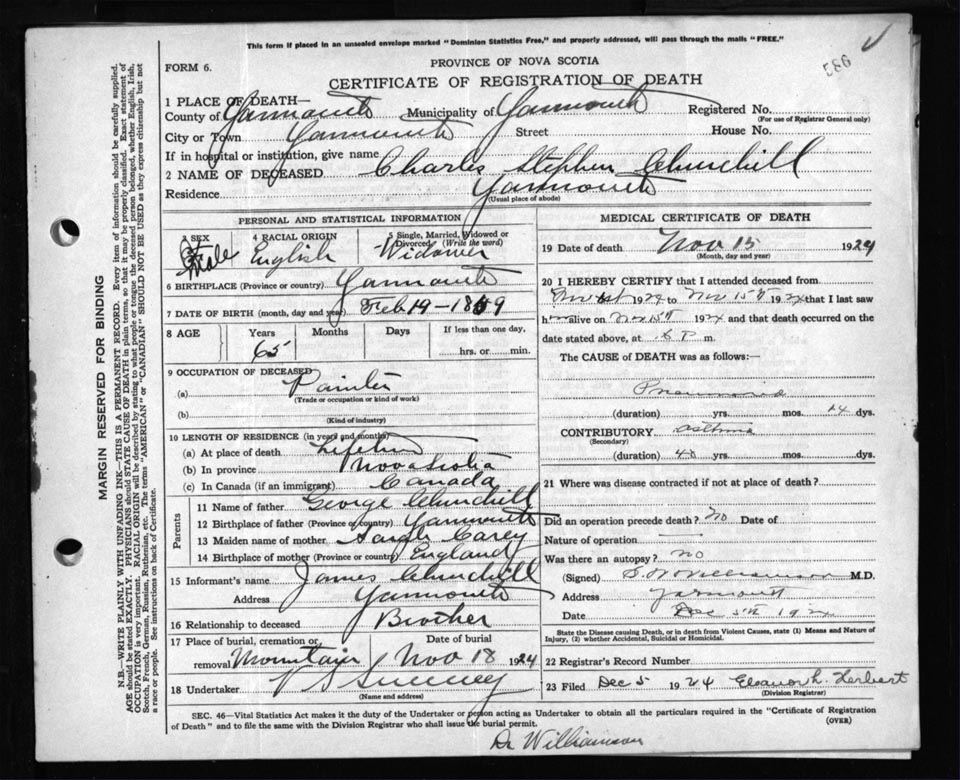 This form if placed in an unsealed envelope marked "Dominion Statistics Free," and properly addressed, will pass through the mails "FREE."
586
PROVINCE OF NOVA SCOTIA
FORM 6.
CERTIFICATE OF REGISTRATION OF DEATH
1 PLACE OF DEATH—
County of Yarmouth Municipality of Yarmouth Registered No.
(For use of Registrar General only)
City or Town Yarmouth Street House No.
If in hospital or institution, give name
2 NAME OF DECEASED Charles Stephen Churchill
Residence Yarmouth
(Usual place of abode)
PERSONAL AND STATISTICAL INFORMATION
3 SEX 4 RACIAL ORIGIN 5 Single, Married, Widowed or Divorced. (Write the word)
Male English Widower
6 BIRTHPLACE (Province or country) Yarmouth
7 DATE OF BIRTH (month, day and year) Feb 19-1859
8 AGE Years Months Days If less than one day,
65 hrs. or min.
9 OCCUPATION OF DECEASED
(a) Painter
(Trade or occupation or kind of work)
(b)
(Kind of industry)
10 LENGTH OF RESIDENCE (in years and months)
(a) At place of death Lifetime
(b) In province Nova Scotia
(c) In Canada (if an immigrant) Canada
Parents
11 Name of father George Churchill
12 Birthplace of father (Province or country) Yarmouth
13 Maiden name of mother Sarah Carey
14 Birthplace of mother (Province or country) England
15 Informant's name James Churchill
Address Yarmouth
16 Relationship to deceased Brother
17 Place of burial, cremation or removal Date of burial
Mountain Nov 18 1924
18 Undertaker V S Sweeney
(Name and address)
MEDICAL CERTIFICATE OF DEATH
19 Date of death Nov 15 1924
(Month, day and year)
20 I HEREBY CERTIFY that I attended deceased from
Nov 1st 1924 to Nov 15th 1924 that I last saw
h alive on Nov 15th 1924 and that death occurred on
date stated above, at 8 P m.
The CAUSE of DEATH was as follows:
Pneumonia
(duration) yrs. mos. 14 dys.
CONTRIBUTORY Asthma
(Secondary)
(duration) 40 yrs. mos. dys.
21 Where was disease contracted if not at place of death?
Did an operation precede death? No Date of
Nature of operation
Was there an autopsy? no
(Signed) Williamson M.D.
Address Yarmouth
Date Dec 5th 1924
State the Disease causing Death, or in death from Violent Causes, state (1) Means and Nature of
Injury, (2) whether Accidental, Suicidal or Homicidal.
22 Registrar's Record Number
23 Filed Dec 5 1924 Eleanor L. Herbert
(Division Registrar)
SEC. 46—Vital Statistics Act makes it the duty of the Undertaker or person acting as Undertaker to obtain all the particulars required in the "Certificate of Registration
of Death" and to file the same with the Division Registrar who shall issue the burial permit. (OVER)
Dr Williamson
MARGIN RESERVED FOR BINDING
N.B.—WRITE PLAINLY WITH UNFADING INK—THIS IS A PERMANENT RECORD. Every item of information should be carefully supplied.
AGE should be stated EXACTLY. PHYSICIANS should STATE CAUSE OF DEATH in plain terms, so that it may be properly classified. Exact statement of
OCCUPATION is very important. RACIAL ORIGIN will be described by stating to what people or tongue the deceased person belonged, whether English, Irish,
Scotch, French, German, Russian, Ruthenian, etc. The terms "AMERICAN" or "CANADIAN" SHOULD NOT BE USED as they express citizenship but not
a race or people. See instructions on back of Certificate.